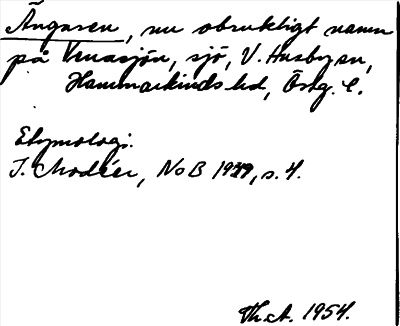 Ängaren, nu obrukligt namn
på Venasjön, sjö, V. Husby sn,
Hammarkinds hd, Östg. l.
Etymologi.
I. Modéer, NoB 1949, s. 4.
Th.A. 1954.